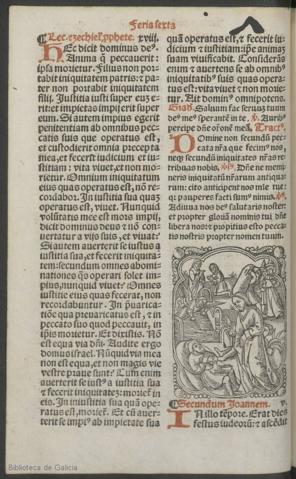 Feria sexta
Lec. ezechiel. pphete. xviij.
Hec dicit dominus deꝰ.
Anima q̄ peccauerit:
ipsa morietur. Filius non por-
tabit iniquitatem patris: ⁊ pa-
ter non portabit iniquitatem
filij. Justitia iusti super eũ e-
rit: et impietas impij erit super
eum. Si autem impius egerit
penitentiam ab omnibus pec-
catis suis que operatus est,
et custodierit omnia precepta
mea, et fecerit iudicium et iu-
stitiam: vita viuet, et non mo-
rietur. Omnium iniquitatum
eius quas operatus est, nõ re-
cordabor. In iustitia sua quã
operatus est, viuet. Nunquid
volũtatis mee est mors impij,
dicit dominus deus: ⁊ nõ con-
uertatur a vijs suis, et viuat:
Si autem auerterit se iustus a
iustitia sua, et fecerit iniquita-
tem: secundum omnes abomi-
nationes q̄s operari solet im-
pius, nunquid viuet? Omnes
iustitie eius quas fecerat, non
recordabuntur. In p̄uarica-
tiõe qua preuaricatus est, ⁊ in
peccato suo quod peccauit, in
ipsis morietur. Et dixistis. Nõ
est equa via dñi. Audite ergo
domus israel. Nũquid via mea
non est equa, et non magis vie
vestre praue sunt? Cum enim
auerterit se iustꝰ a iustitia sua
⁊ fecerit iniquitatẽ: moriet̃ in
eis. In iniustitia sua quã ope-
ratus est, moriet̃. Et cũ auer-
terit se impiꝰ ab impietate sua
quã operatus est, ⁊ fecerit iu-
dicium ⁊ iustitiam: ip̄e animaz
suam viuificabit. Considerãs
enim ⁊ auertens se ab omnibꝰ
iniquitatibꝰ suis quas opera-
tus est: vita viuet ⁊ non morie-
tur. Ait dominꝰ omnipotens.
Saluum fac seruuz tuum
deꝰ meꝰ sperantẽ in te. Auribꝰ
percipe dñe orõneʒ meã. Tractꝰ.
Domine non secundũ pec-
cata nr̃a que fecimꝰ nos,
neq̃ secundũ iniquitates nr̃as re-
tribuas nobis. Dñe ne me-
neris iniquitatũ nr̃arum antiqua-
rum: cito anticipent nos mie tue:
q̃ pauperes facti sumꝰ nimis.
Adiuua nos deꝰ salutaris noster:
et propter gloriã nominis tui dñe
libera nos: et propitius esto pecca-
tis nostris propter nomen tuum.
Secundum Joannem. v.
In illo tẽpore. Erat dies
festus iudeorũ: ⁊ ascẽdit
Biblioteca de Galicia